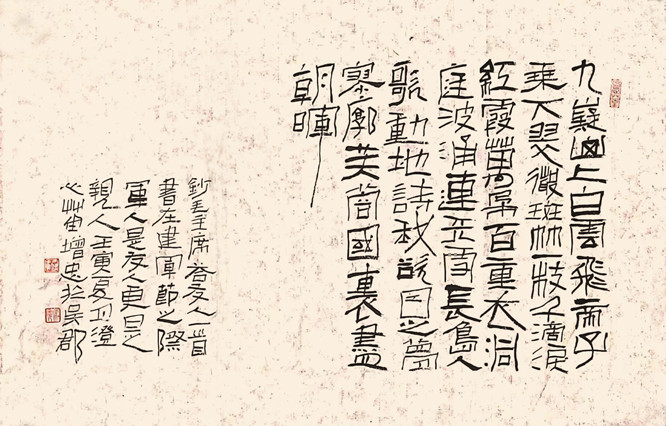 九嶷山上白雲飛帝子
乘下翠微斑竹一枝千滴淚
紅霞萬朵百重衣洞
庭波涌連天雪長島人
歌動地詩我欲因之夢
寥廓芙蓉國裏盡
朝暉
鈔毛主席答友人一首
書在建軍節之際
軍人是友人更是
親人壬寅夏月澄
心增忠於吳郡